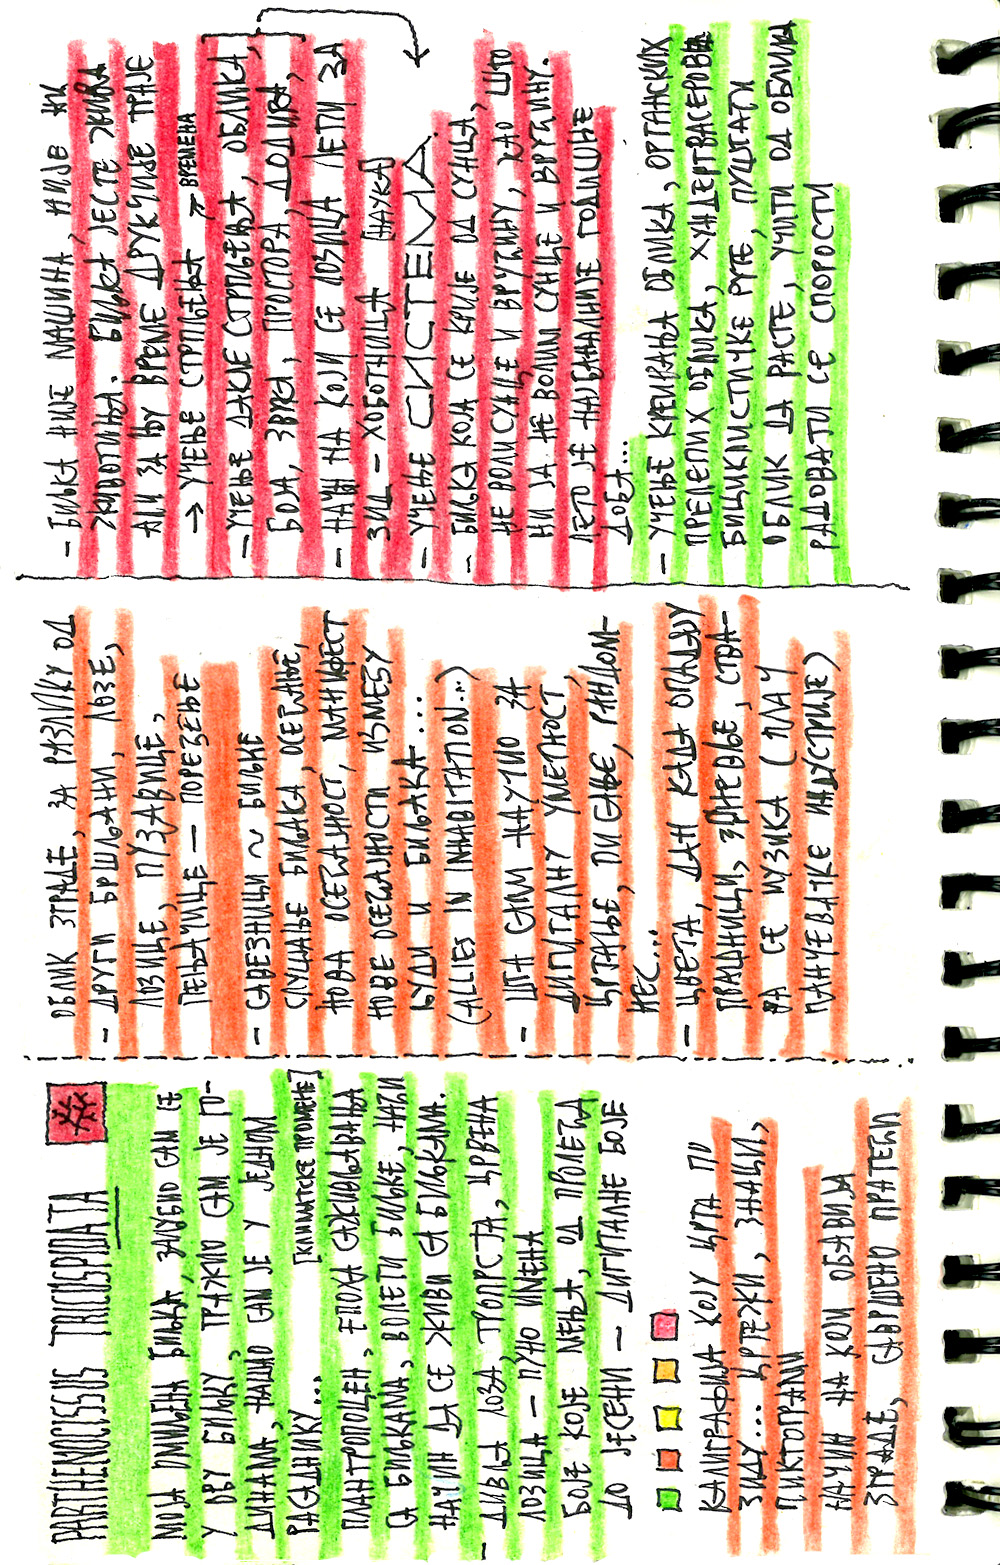 PARTHENOCISSUS TRICUSPIDATA
МОЈА ОМИЉЕНА БИЉКА, ЗАЉУБИО САМ СЕ
У ОВУ БИЉКУ, ТРАЖИО САМ ЈЕ ГО-
ДИНАМА, НАШАО САМ ЈЕ У ЈЕДНОМ
РАСАДНИКУ... [КЛИМАТСКЕ ПРОМЕНЕ]
ПЛАНТРОПОЦЕН, ЕПОХА САЖИВЉАВАЊА
СА БИЉКАМА, ВОЛЕТИ БИЉКЕ, НАЋИ
НАЧИН ДА СЕ ЖИВИ СА БИЉКАМА.
- ДИВЉА ЛОЗА, ТРОПРСТА, ЦРВЕНА
ЛОЗИЦА – ПУНО ИМЕНА
БОЈЕ КОЈЕ МЕЊА, ОД ПРОЛЕЋА
ДО ЈЕСЕНИ – ДИГИТАЛНЕ БОЈЕ
КАЛИГРАФИЈА КОЈУ ЦРТА ПО
ЗИДУ... ЦРТЕЖИ, ЗНАЦИ,
ПИКТОГРАМИ
НАЧИН НА КОЈИ ОБАВИЈА
ЗГРАДЕ, САВРШЕНО ПРАТЕЋИ
ОБЛИК ЗГРАДЕ, ЗА РАЗЛИКУ ОД
- ДРУГИ БРШЉАНИ, ЛОЗЕ,
ЛОЗИЦЕ, ПУЗАВИЦЕ,
ПЕЊАЧИЦЕ – ПОРЕЂЕЊЕ
- САВЕЗНИЦИ ~ БИЉКЕ
СЛУШАЊЕ БИЉАКА, ОСЕЋАЊЕ,
НОВА ОСЕЋАЈНОСТ, МАНИФЕСТ
НОВЕ ОСЕЋАЈНОСТИ ИЗМЕЂУ
ЉУДИ И БИЉАКА...
(ALLIES IN INHABITATION...)
- ШТА САМ НАУЧИО ЗА
ДИГИТАЛНУ УМЕТНОСТ,
ЦРТАЊЕ, ПИСАЊЕ, РАНДОМ-
НЕС...
- ЦВЕТА, ДАН КАДА ОПАДАЈУ
ПРАШНИЦИ, ЗРНЕВЉЕ, СТВА-
РА СЕ МУЗИКА (ПЛАЧ
ПЛАНЧЕВАТКЕ ИНДУСТРИЈЕ)
- БИЉКА НИЈЕ МАШИНА, НИЈЕ НИ
ЖИВОТИЊА. БИЉКА ЈЕСТЕ ЖИВА
АЛИ ЗА ЊУ ВРЕМЕ ДРУКЧИЈЕ ТРАЈЕ
→ УЧЕЊЕ СТРПЉЕЊА ↗ ВРЕМЕНА
- УЧЕЊЕ ДАКЛЕ СТРПЉЕЊА, ОБЛИКА,
БОЈА, ЗВУКА, ПРОСТОРА, ДОДИРА,
- НАЧИН НА КОЈИ СЕ ЛОЗИЦА ЛЕПИ ЗА
ЗИД – ХОБОТНИЦА [НАУКА]
- УЧЕЊЕ СИСТЕМА.
- БИЉКА КОЈА СЕ КРИЈЕ ОД СУНЦА,
НЕ ВОЛИ СУНЦЕ И ВРУЋИНУ, КАО ШТО
НИ ЈА НЕ ВОЛИМ СУНЦЕ И ВРУЋИНУ.
ЛЕТО ЈЕ НАЈБАНАЛНИЈЕ ГОДИШЊЕ
ДОБА...
- УЧЕЊЕ КРЕИРАЊА ОБЛИКА, ОРГАНСКИХ
ПРЕЛЕПИХ ОБЛИКА, ХУНДЕРТВАСЕРОВЕ
БИЦИКЛИСТИЧКЕ РУТЕ, ПУШТАТИ
ОБЛИК ДА РАСТЕ, УЧИТИ ОД ОБЛИКА
РАДОВАТИ СЕ СПОРОСТИ